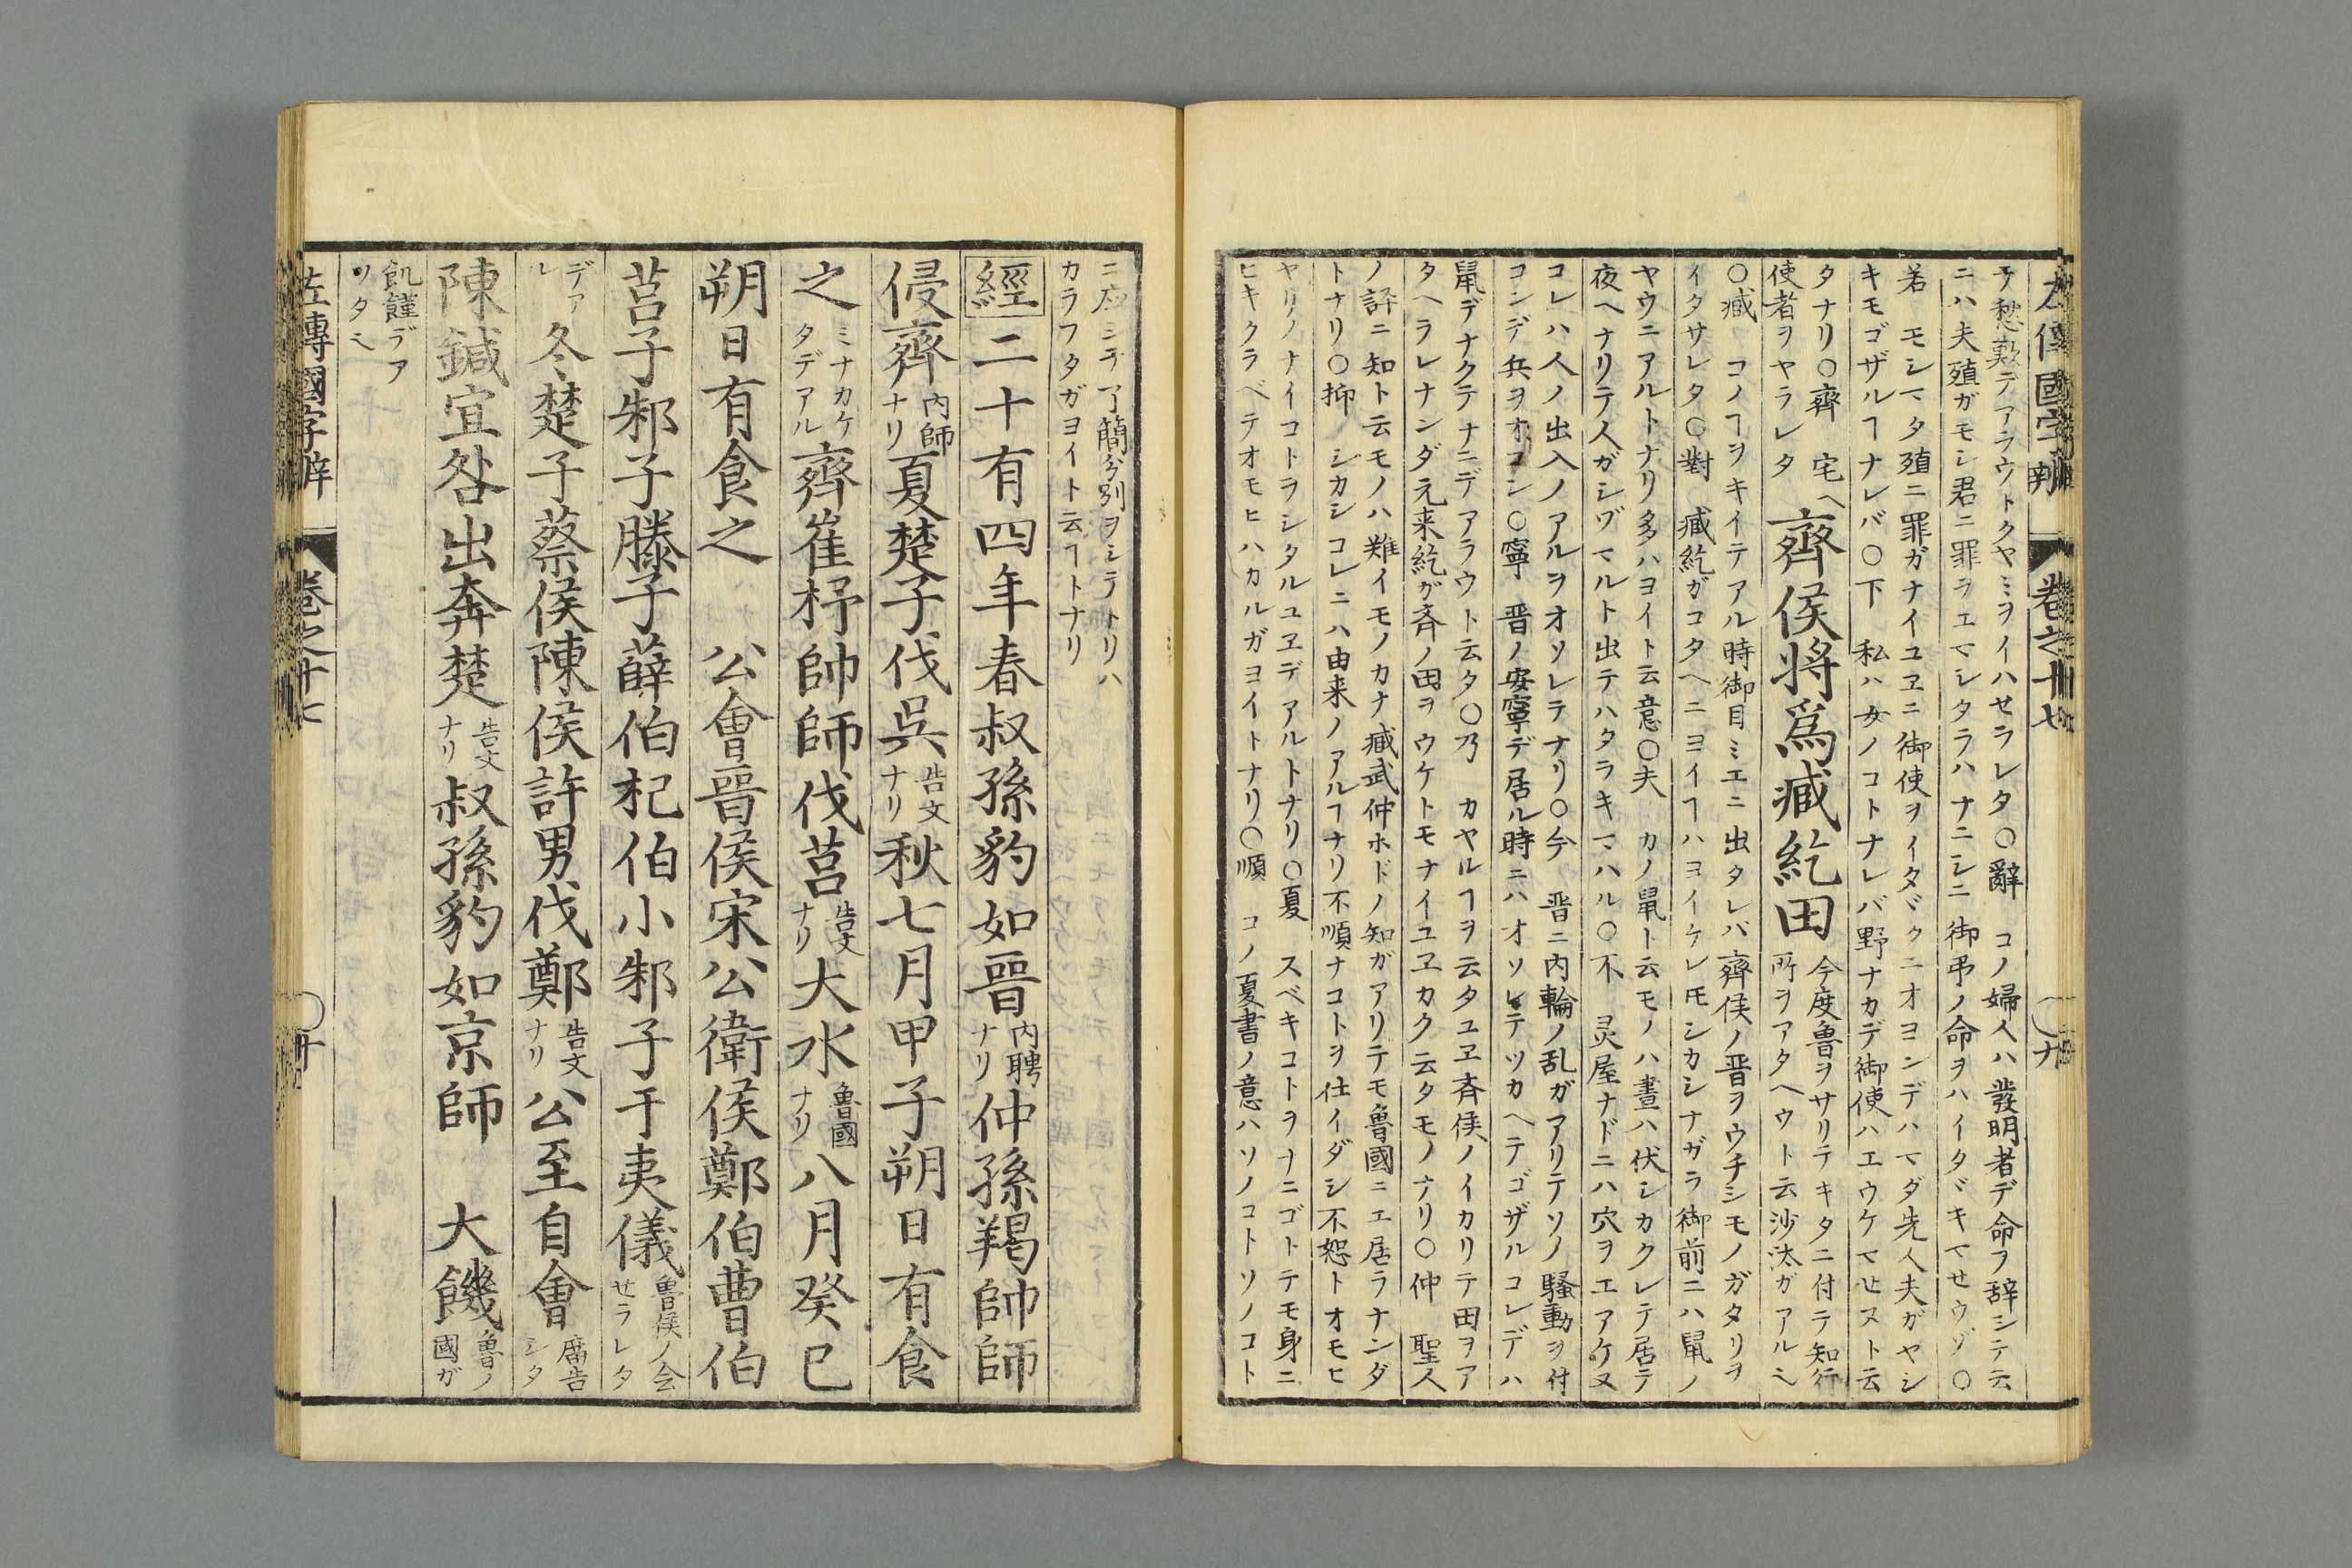 左傳國字辨 卷之十七 十九
テ愁歎デアラウトクヤミヲイハセラレタ〇辭 コノ婦人ハ發明者デ命ヲ辞シテ云
ニハ夫殖ガモシ君ニ罪ヲエマシタラハナニシニ御弔ノ命ヲハイタヾキマせウゾ〇
若 モシマタ殖ニ罪ガナイユヱニ御使ヲイタヾクニオヨンデハマダ先人夫ガヤシ
キモゴザルヿナレバ〇下 私ハ女ノコトナレバ野ナカデ御使ハエウケマせヌト云
タナリ〇齊 宅ヘ
使者ヲヤラレタ
齊侯将爲臧紇田
今度魯ヲサリテキタニ付テ知行
所ヲアタヘウト云沙汰ガアルニ
〇臧 コノヿヲキイテアル時御目ミエニ出タレバ齊侯ノ晋ヲウチシモノガタリヲ
イタサレタ〇對 臧紇ガコタヘニヨイヿハヨイケレ𪜈シカシナガラ御前ニハ鼠ノ
ヤウニアルトナリ多ハヨイト云意〇夫 カノ鼠ト云モノハ晝ハ伏シカクレテ居テ
夜ヘナリテ人ガシヅマルト出テハタラキマハル〇不 灵屋ナドニハ穴ヲエアケヌ
コレハ人ノ出入ノアルヲオソレラナリ〇今 晋ニ内輪ノ乱ガアリテソノ騒動ヲ付
コンデ兵ヲオコシ〇寧 晋ノ安寧デ居ル時ニハオソレテツカヘテゴザルコレデハ
鼠デナクテナニデアラウト云タ〇乃 カヤルヿヲ云タユヱ斉侯ノイカリテ田ヲア
タヘラレナンダ元来紇ガ斉ノ田ヲウケトモナイユヱカク云タモノナリ〇仲 聖人
ノ評ニ知ト云モノハ難イモノカナ臧武仲ホドノ知ガアリテモ魯國ニエ居ラナンダ
トナリ〇抑 シカシコレニハ由来ノアルヿナリ不順ナコトヲ仕イダシ不恕トオモヒ
ヤリノナイコトヲシタルユヱデアルトナリ〇夏 スベキコトヲナニゴトテモ身ニ
ヒキクラベテオモヒハカルガヨイトナリ〇順 コノ夏書ノ意ハソノコトソノコト
ニ応シテ了簡分別ヲシテトリハ
カラフタガヨイト云ヿトナリ
經二十有四年春叔孫豹如晉内聘ナリ仲孫羯帥師
侵齊内師ナリ夏楚子伐呉告文ナリ秋七月甲子朔日有食
之ミナカケタデアル齊崔杼帥師伐莒告文ナリ大水魯國ナリ八月癸巳
朔日有食之 公會晋侯宋公衛侯鄭伯曹伯
莒子邾子滕子薛伯杞伯小邾子于夷儀魯侯ノ会せラレタ
デアル冬楚子蔡侯陳侯許男伐鄭告文ナリ公至自會席告シタ
陳鍼宜咎出奔楚告文ナリ叔孫豹如京師 大饑魯ノ國ガ
飢饉デア
ツタニ
左傳國字辨 卷之十七 二十